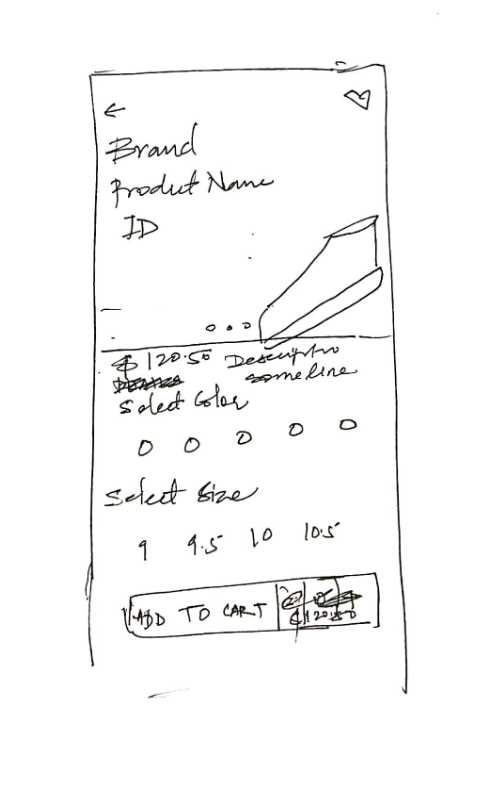 Brand
Product Name
ID
$ 120.50 Descriptio
some line
Select Color
Select Size
9 9.5 10 10.5
ADD TO CART
$120.50